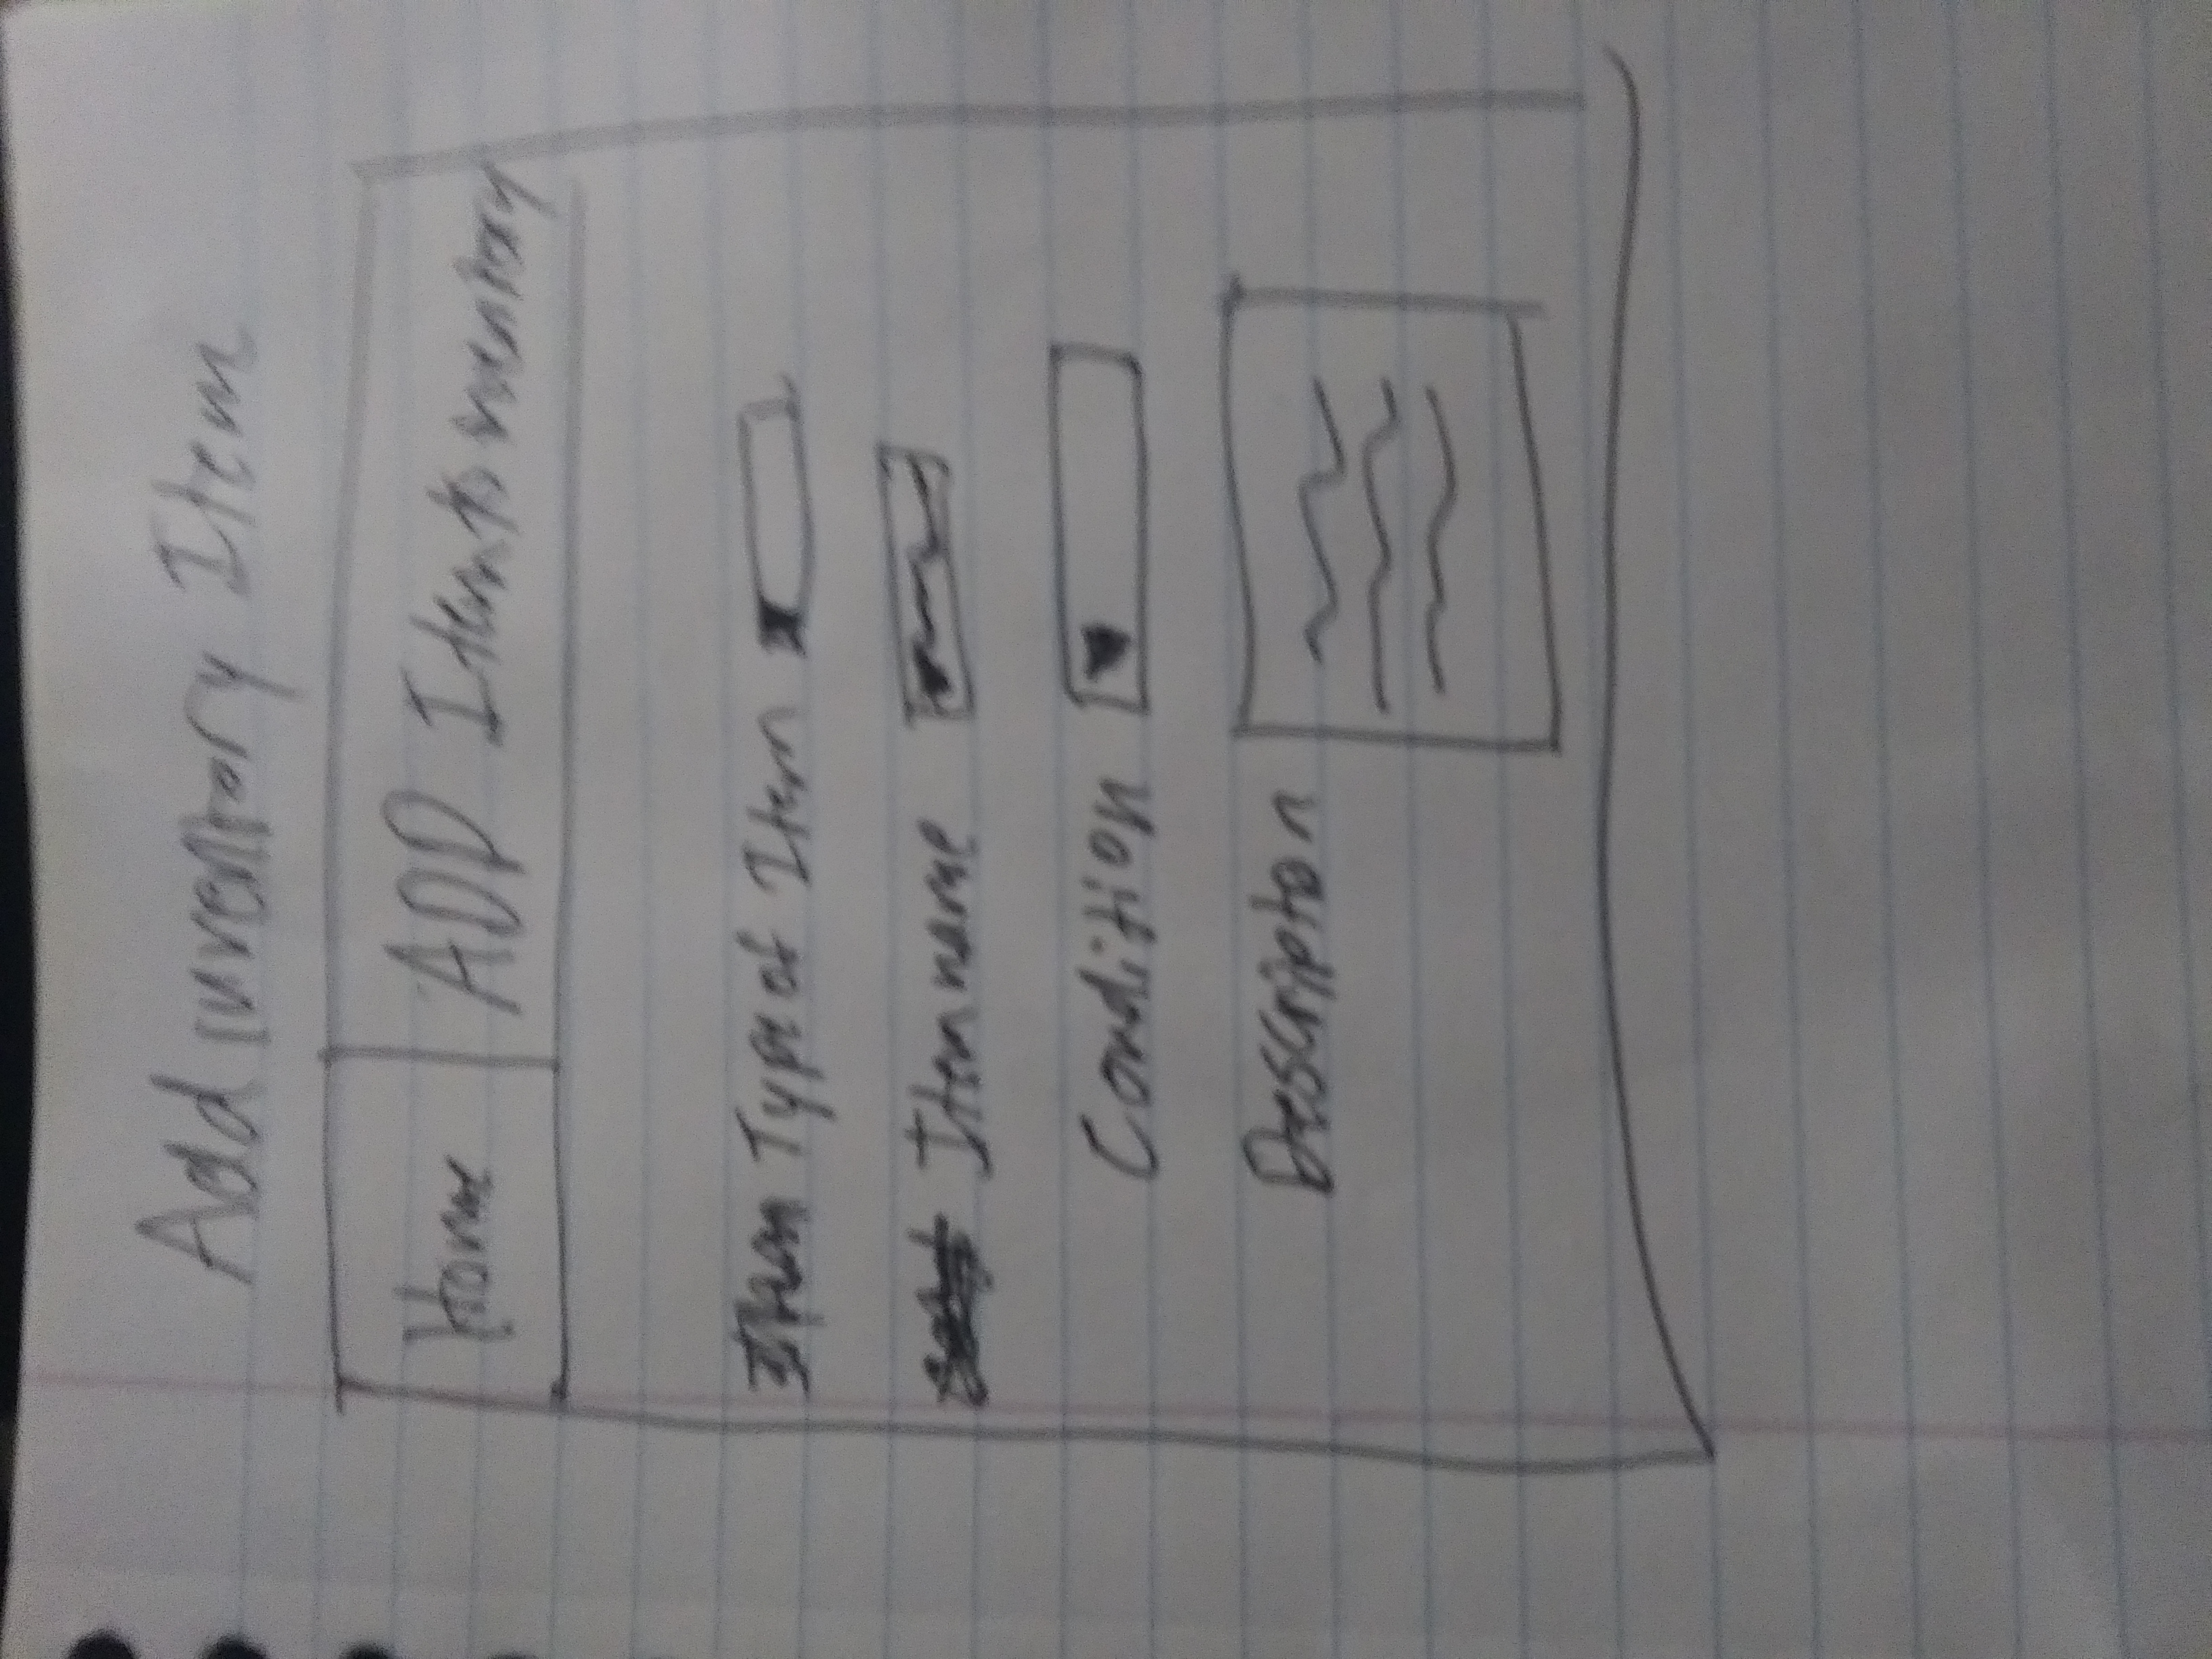 Add inventory Item
Home
ADD Item to inventory
Item Type of Item
Item name
Condition
Description